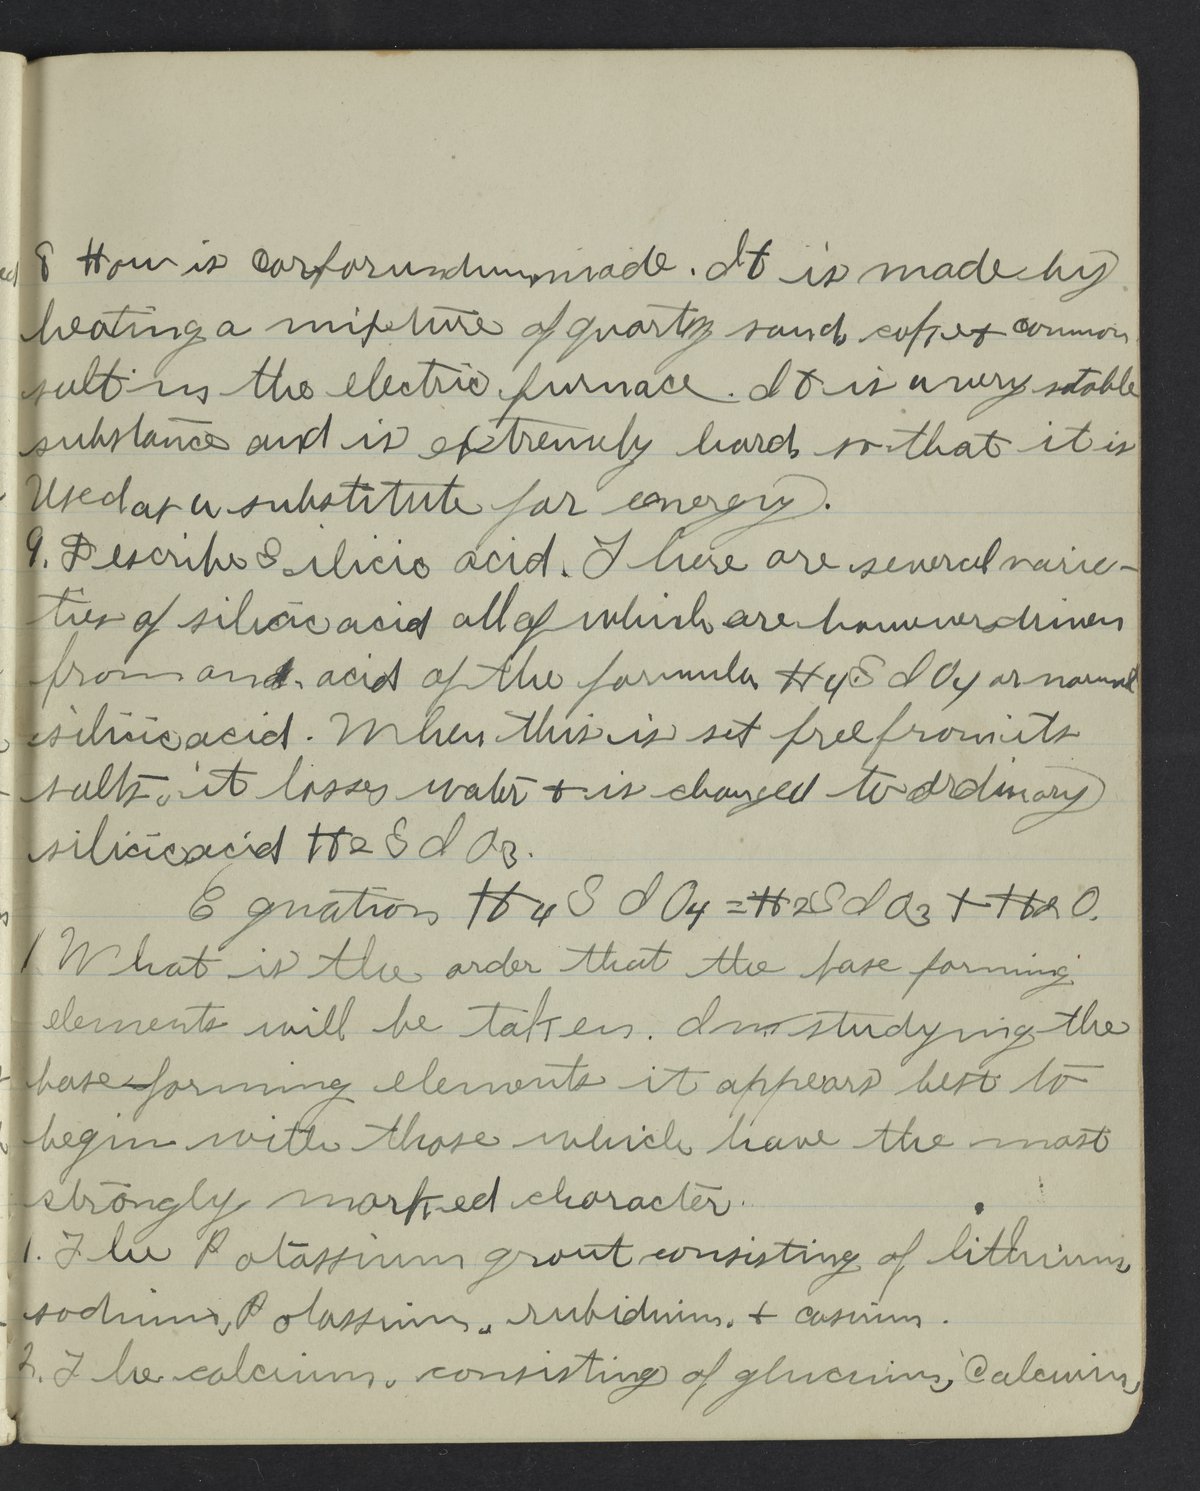 8 How is Corforundum made. It is made by
heating a mixture of quartz sand, coke + common
salt in the electric furnace. It is a very stable
substance and is extremely hard, so that it is
used as a substitute for energy.
9. Describe Silicic acid. There are several varie-
ties of silicic acid all of which are however driven
from and acid of the formula H4 S I O4 or normal
silicic acid. When this is set free from its
salts, it losses water + is changed to ordinary
silicic acid H2 S I O3.
Equation H4 S I O4 = H2 S I O3 + H2 O.
1 What is the order that the base forming
elements will be taken. In studying the
base-forming elements it appears best to
begin with those which have the most
strongly marked character.
1. The Potassium grout consisting of lithium,
sodium, Potassium, rubidium, + casium.
2. The calcium, consisting of glucinum, Calcium,